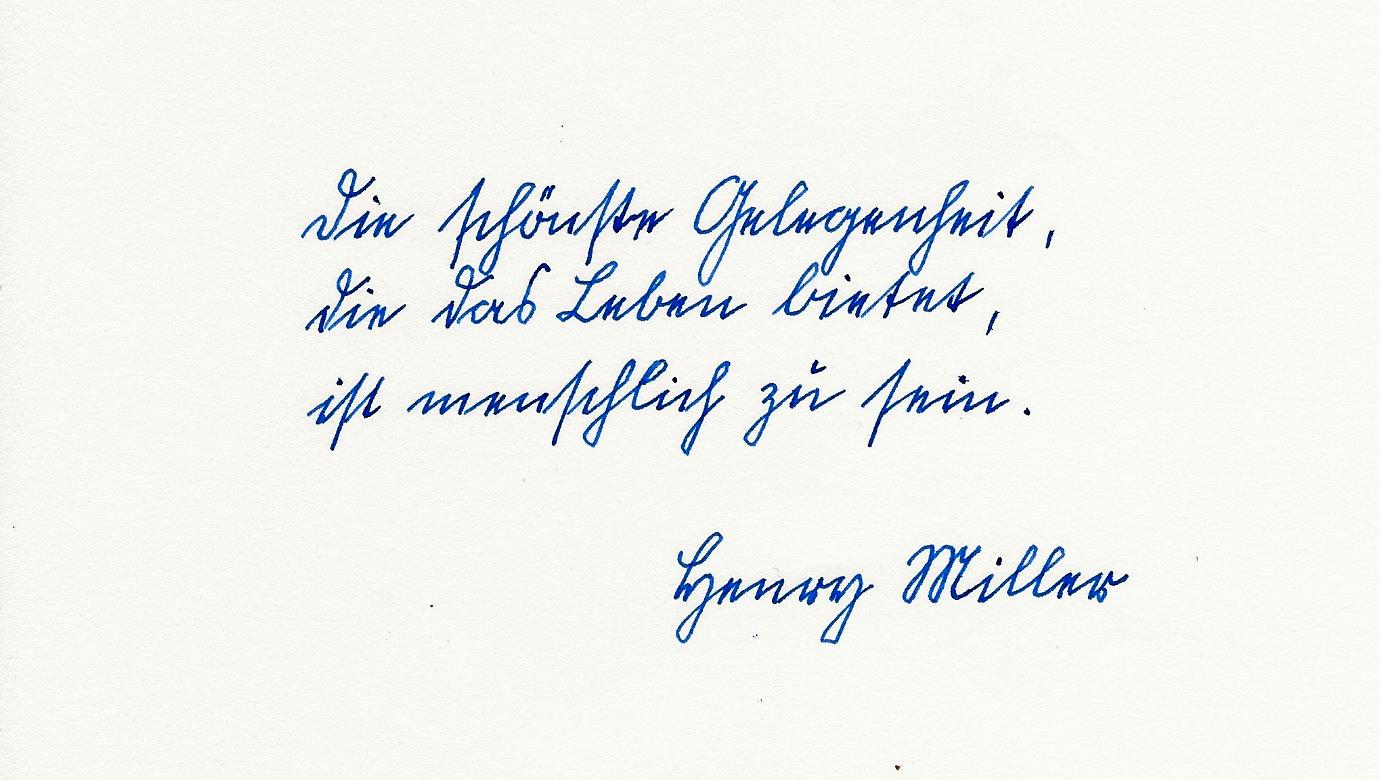 Die schönste Gelegenheit,
die das Leben bietet,
ist menschlich zu sein.
Henry Miller